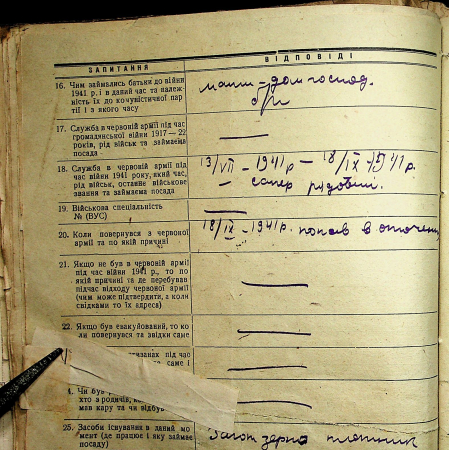 ЗАПИТАННЯ
ВІДПОВІДІ
16. Чим займались батьки до війни
1941 р. і в даний час та належ-
ність їх до комуністичної пар
тії і з якого часу
мати – дом господ.
б/п
17. Служба в червоній армії під час
громадянської війни 1917 — 22
років, рід військ та займаєма
посада
18. Служба в червоній армії під
час війни 1941 року, який час,
рід військ, останнє військове
звання та займаєма посада
13/VII – 1941 р – 18/IX – 1941 р.
– сапер рядовий.
19. Військова спеціальність
№ (ВУС)
20. Коли повернувся з червоної
армії та по якій причині
18/IX – 1941 р. попав в оточення
21. Якщо не був в червоній армії
під час війни 1941 р., то по
якій причині та де перебував
підчас відходу червоної армії
(чим може підтвердити, а коли
свідками то їх адреса)
22. Якщо був евакуйований, то ко
ли повернувся та звідки саме
партизанах під час
саме і
4. Чи був
хто з родичів, ко
мав кару та чи відбув
25. Засоби існування в даний мо
мент (де працює і яку займає
посаду)
Загот зерно плотник